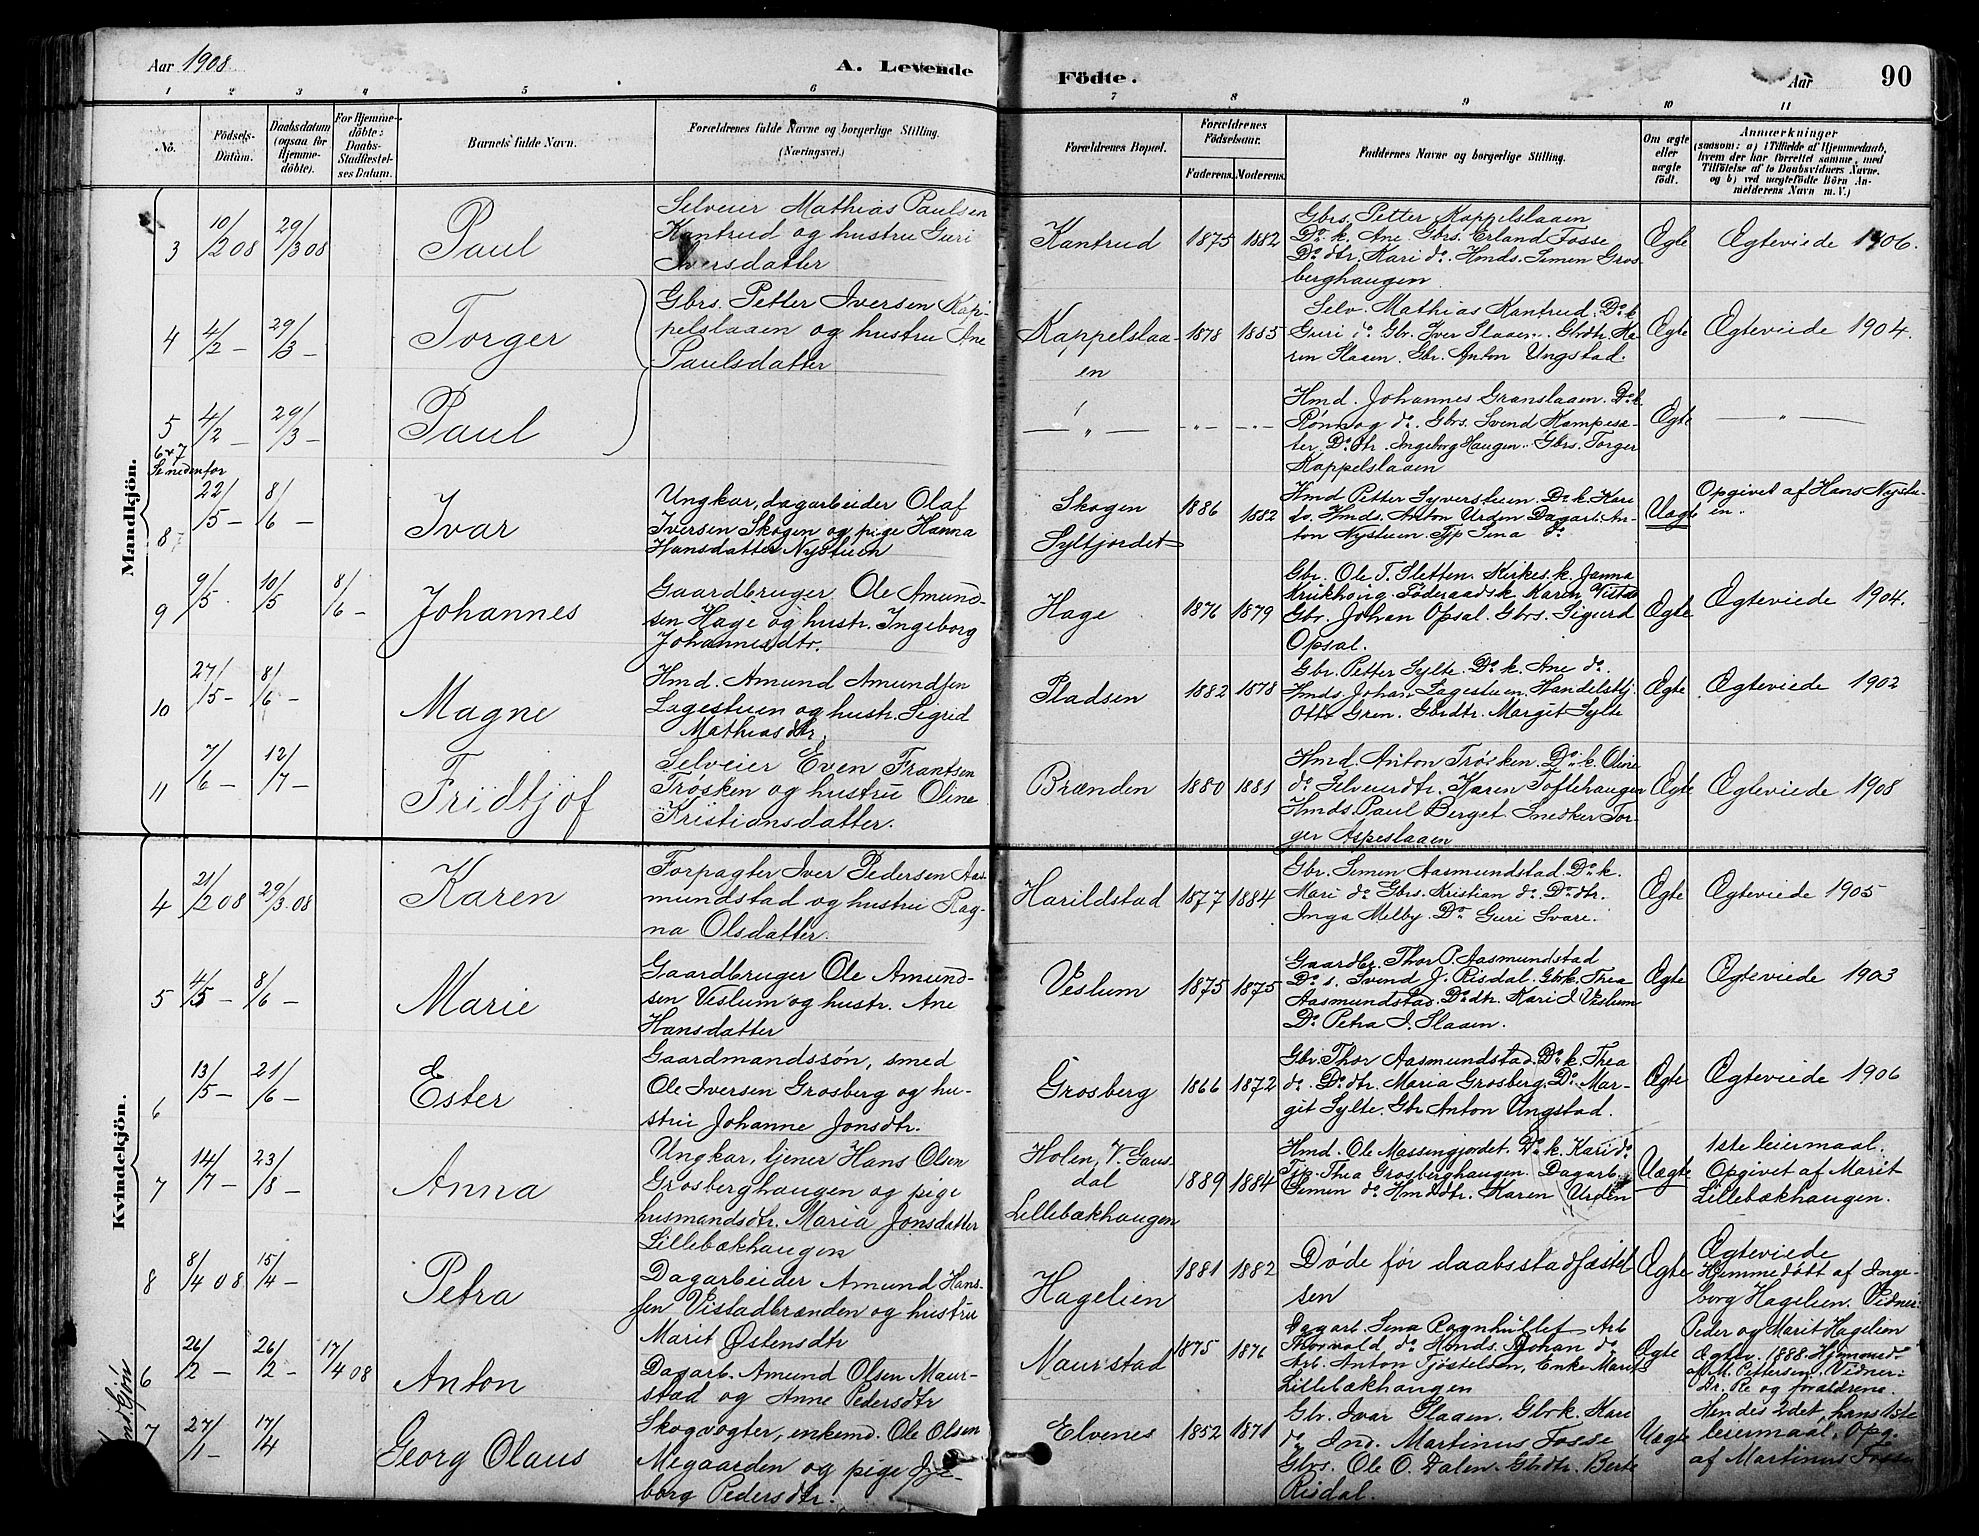 Aar 1908
A. Levende
Födte.
Aar
90
1 2 3 4 5 6 7 8 9 10 11
No.
Födsels-
Datum.
Daabsdatum
(ogsaa for
Hjemme-
döbte).
For Hjemme-
döbte:
Daabs-
Stadfæstel-
ses Datum.
Barnets fulde Navn.
Forældrenes fulde Navne og borgerlige Stilling.
(Næringsvei.)
Forældrenes Bopæl.
Forældrenes
Födselsaar.
Faderens. Moderens.
Faddernes Navne og borgerlige Stilling.
Om ægte
eller
uægte
födt.
Anmærkninger
(saasom: a) i Tilfælde af Hjemmedaab,
hvem der har forrettet samme, med
Tilföielse af to Daabsvidners Navne.
og b) ved uægtefödte Börn An-
melderens Navn m. V.)
Mandkjön.
3 10/2 08 29/3 08 Paul
Selveier Mathias Paulsen
Kantrud og hustru Guri
Iversdatter
Kantrud 1875 1882
Gbrs. Petter Kappelslaaen
Do. k. Ane. Gbrs. Erland Fosse
Do. dtr. Kari do. Hmds. Simen Gros
berghaugen
Ægte Ægteviede 1906.
4 4/2 – 29/3 – Torger
Gbrs. Petter Iversen Kap-
pelslaaen og hustru Ane
Paulsdatter
Kappelslaa-
en
1878 1885
Selv. Mathias Kantrud. Do. k
Guri do. Gbr. Iver Slaaen. Gbrdtr. Ka
ren Slaaen. Gbr. Anton Ungstad.
Ægte Ægteviede 1904.
5 4/2 – 29/3 – Paul
— „ — -„- -„-
Hmd. Johannes Grønslaaen. Do. k.
Rønnog do. Gbrs. Svend Kampesæ-
ter. Do. dtr. Ingeborg Haugen. Gbrs. Torger
Kappelslaaen
Ægte — „ —
6 & 7
Se nedenfor
8 22/5 – 8/6 – Ivar
Ungkar, dagarbeider Olaf
Iversen Skogen og pige Hanna
Hansdatter Nystuen
Skogen
Syltjordet
1886 1882
Hmd Petter Syverstuen. Do. k. Kari
do. Hmds. Anton Urden Dagarb. An-
ton Nystuen. Tjp Sina do.
Uægte
Opgivet af Hans Nystu-
en.
9 9/5 – 10/5 8/6 – Johannes
Gaardbruger Ole Amund-
sen Hage og hustr. Ingeborg
Johannesdtr.
Hage 1876 1879
Gbr. Ole T. Sletten. Kirkes. k. Janna
Krukhong. Føderaadsk. Karen Vistad
Gbr. Johan Opsal. Gbrs. Sigurd
Opsal.
Ægte Ægteviede 1904.
10 27/5 – 8/6 – Magne
Hmd. Amund Amundsen
Lagestuen og hustr. Sigrid
Mathiasdtr.
Pladsen 1882 1878
Gbr. Petter Sylte. Do. k. Ane do.
Hmds. Johan Lagestuen. Handelsbtj.
Otto Gren. Gbrdtr. Margit Sylte
Ægte Ægteviede 1902
11 7/6 – 12/7 – Fridtjof
Selveier Even Frantsen
Trøsken og hustru Oline
Kristiansdatter.
Brænden 1880 1881
Hmd. Anton Trøsken. Do. k. Oline
do. Selveierdtr. Karen Toftehaugen
Hmds. Paul Berget. Snedker Tor-
ger Aspeslaaen
Ægte Ægteviede 1908
Kvindekjön.
4 21/2 08 29/3 08 Karen
Forpagter Iver Pedersen Aas
mundstad og hustru Rag-
na Olsdatter.
Harildstad 1877 1884
Gbr. Simen Aasmundstad. Do. k.
Mari do. Gbrs. Kristian do. Do. dtr.
Inga Melby. Do. Guri Svare.
Ægte Ægteviede 1905
5 4/5 – 8/6 – Marie
Gaardbruger Ole Amund-
sen Veslum og hustr. Ane
Hansdatter
Veslum 1875 1875
Gaardbr. Thor P. Aasmundstad
Do. s. Svend J. Risdal. Gbrk. Thea
Aasmundstad. Do. dtr. Kari I Veslum
Do. Petra I. Slaaen.
Ægte Ægteviede 1903
6 13/5 – 21/6 – Ester
Gaardmandssøn, smed
Ole Iversen Grosberg og hu-
stru Johanne Jonsdtr.
Grosberg 1866 1872
Gbr. Thor Aasmundstad. Do. k. Thea
do. Do. dtr. Maria Grosberg. Do. Mar-
git Sylte. Gbr Anton Ungstad.
Ægte Ægteviede 1906
7 14/7 – 23/8 – Anna
Ungkar, tjener Hans Olsen
Grosberghaugen og pige
husmandsdtr. Maria Jonsdatter
Lillebækhaugen
Holen, V. Gaus-
dal
Lillebækhaugen
1889 1884
Hmd. Ole Massingjordet. Do. k. Kari do.
Tjp. Thea Grosberghaugen. Dagarb.
Simen do. Hmddtr. Karen Urden
Uægte
1ste leiermaal.
Opgivet af Marit
Lillebækhaugen.
8 8/4 08 15/4 – Petra
Dagarbeider Amund Hans-
sen Vistadbrænden og hustru
Marit Østensdtr
Hagelien 1881 1882
Døde før daabsstadfæstel
sen
Ægte
Ægteviede
Hjemmedøbt af Inge-
borg Hagelien. Vidner:
Peder og Marit Hagelien
Mandkjön
6 26/2 – 26/2 – 17/4 08 Anton
Dagarb. Amund Olsen Maur-
stad og Anne Pedersdtr
Maurstad 1875 1876
Dagarb. Sina Ragnhullet Arb
Thorvald do. Hmds. Johan do
Arb. Anton Tjøstelsen, Enke Marit
Lillebækhaugen
Ægte
Ægtev. 1888. Hjemmed.
af M. Pettersen. Vidner:
Dr. Re og forældrene.
7 27/1 – 17/4 Georg Olaus
Skogvogter, enkemd. Ole Olsen
Megaarden og pige Inge-
borg Pedersdtr.
Elvenes 1852 1871
Gbr. Ivar Slaaen. Gbrk. Kari
do. Ind. Martinus Fosse
Gbrs. Ole O. Dalen. Gbrdtr. Berte
Risdal.
Uægte
Hendes 2det, hans 1ste
leiermaal. Opg.
af Martinus Fosse